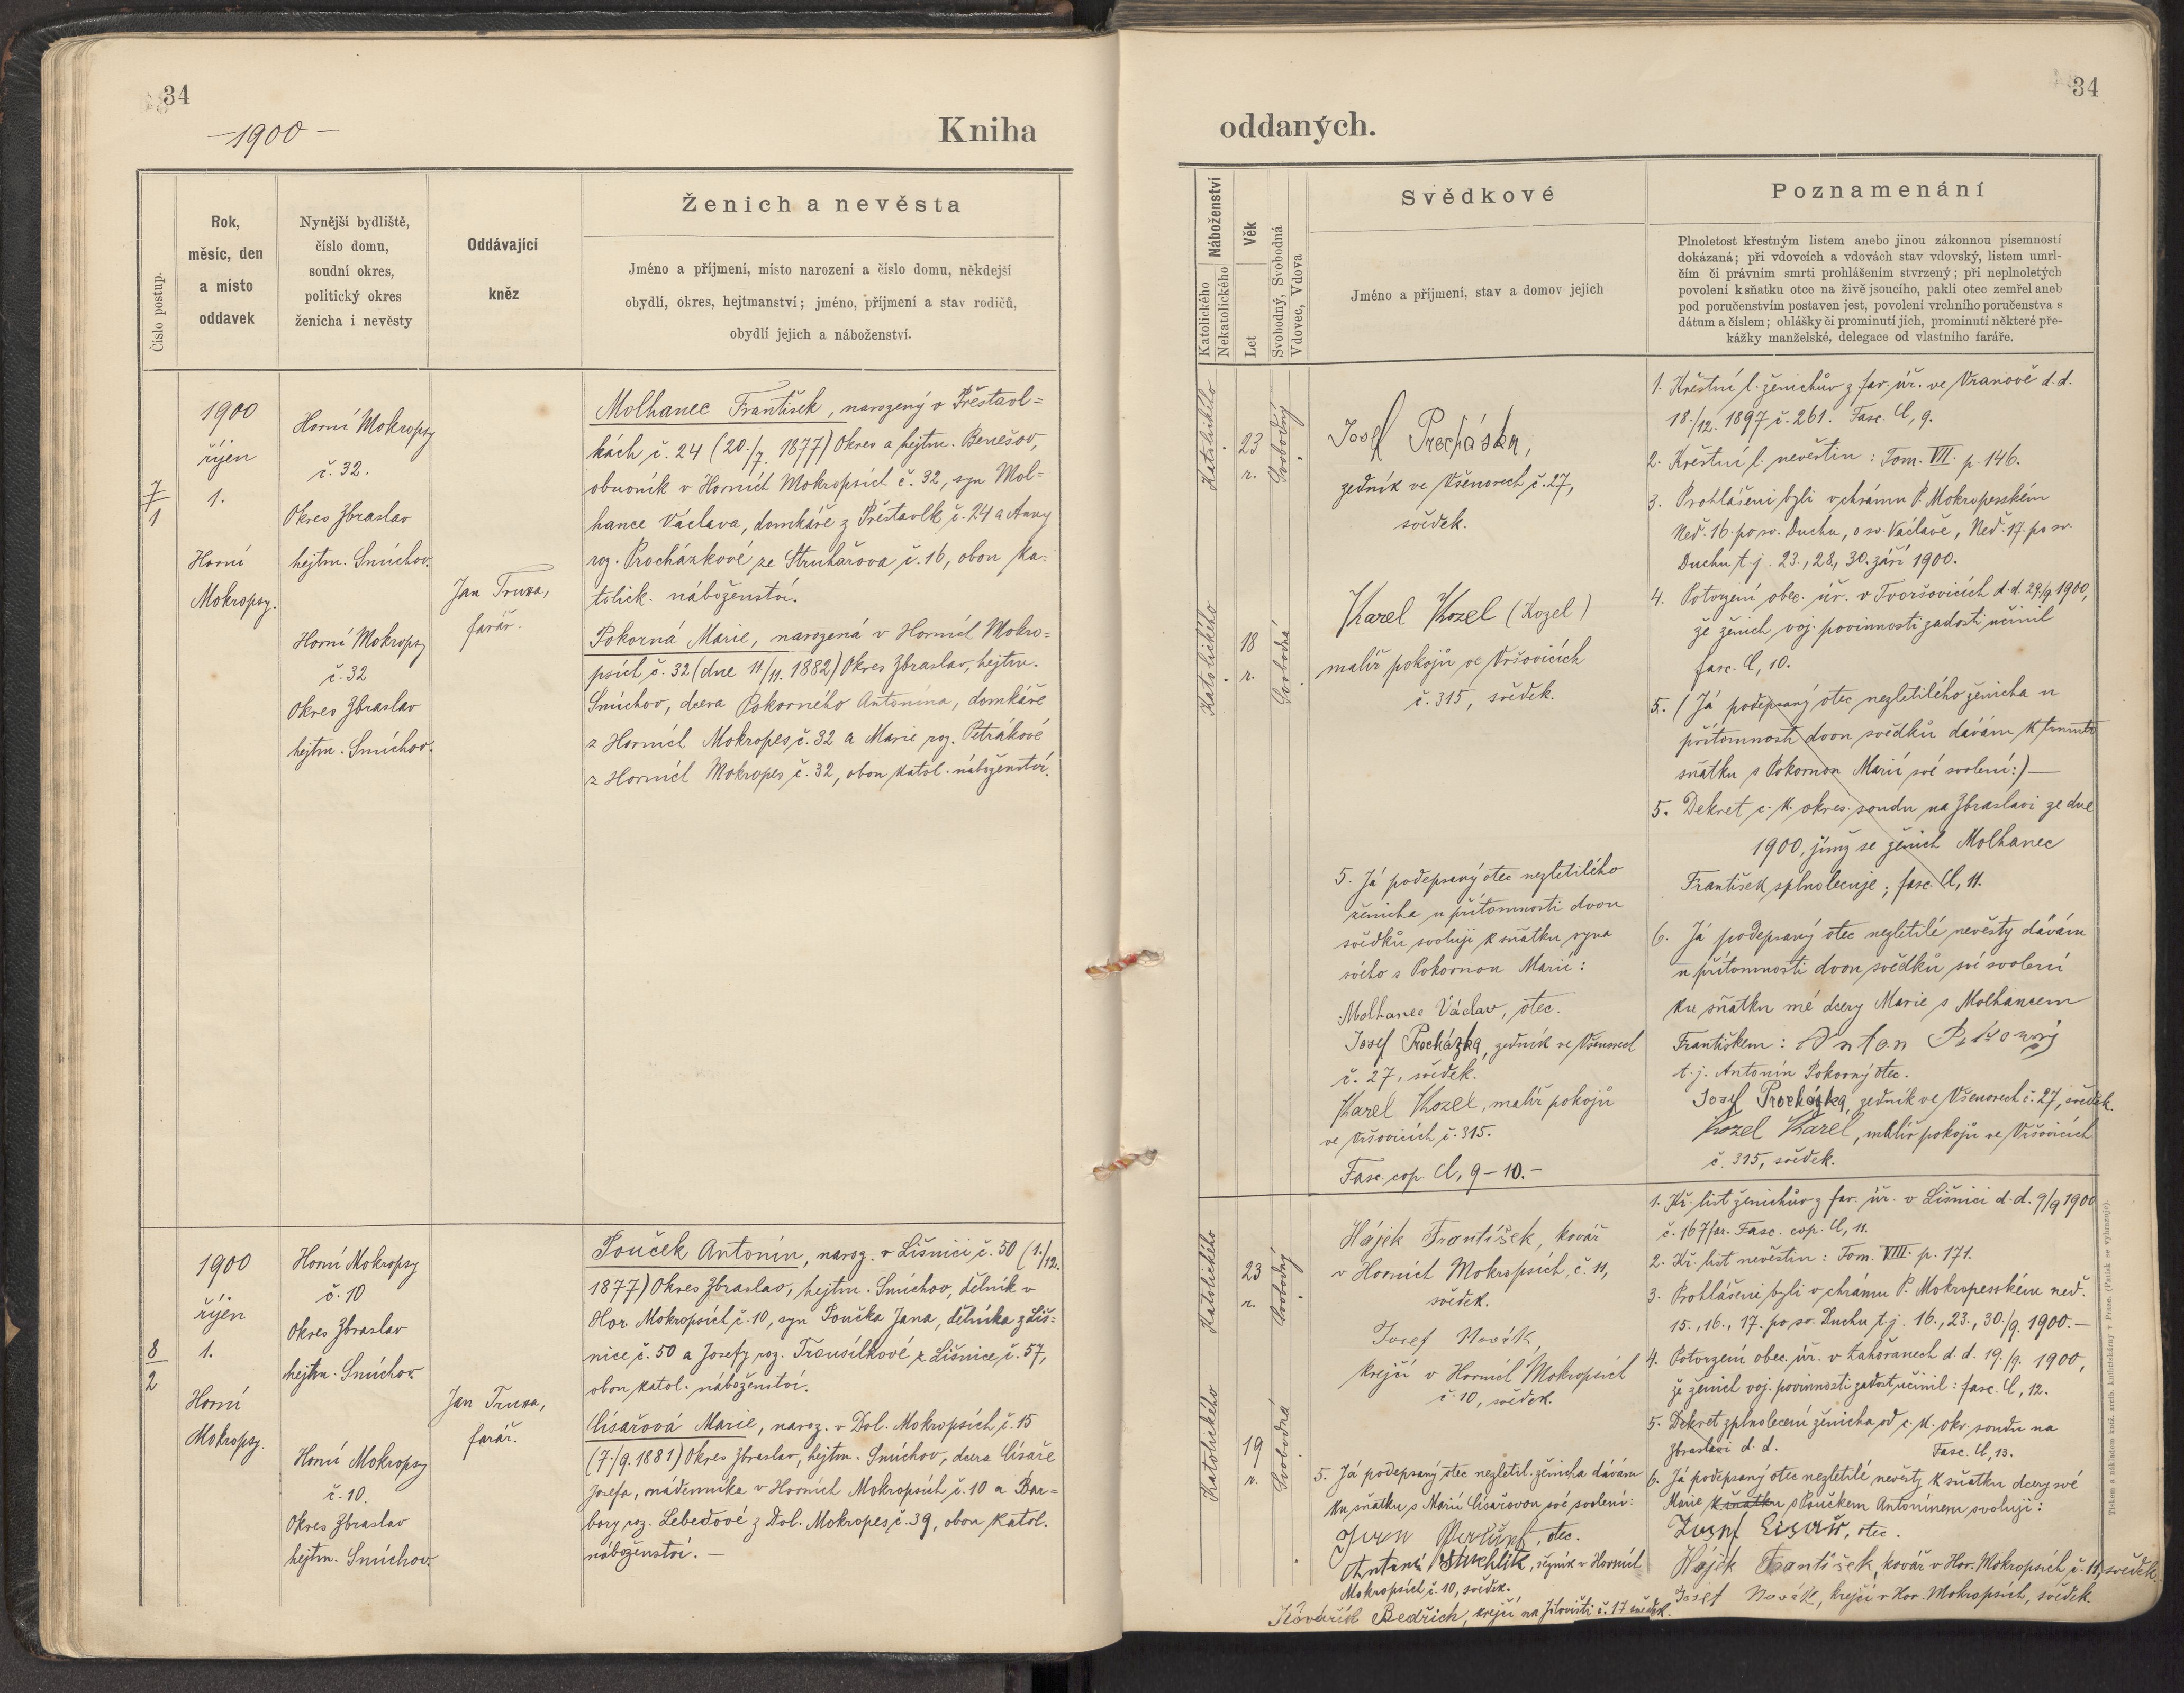 34
-1900-
Kniha
Číslo postup.
Rok,
měsíc, den
a místo
oddavek
Nynější bydliště,
číslo domu,
soudní okres,
politický okres
ženicha i nevěsty
Oddávající
kněz
Ženich a nevěsta
Jméno a příjmení, místo narození a číslo domu, někdejší
obydlí, okres, hejtmanství; jméno, příjmení a stav rodičů,
obydlí jejich a náboženství.
7
1
1900
říjen
1.
Horní
Mokropsy.
Horní Mokropsy
č. 32.
Okres Zbraslav
hejtm. Smíchov.
Horní Mokropsy
č. 32
Okres Zbraslav
hejtm. Smíchov.
Jan Truxa,
farář.
Molhanec František, narozený v Přestavl=
kách č. 24 (20./7. 1877) Okres a hejtm. Benešov,
obuvník v Horních Mokropsích č. 32, syn Mol=
hance Václava, domkáře z Přestavlk č. 24 a Anny
roz. Procházkové ze Struhařova č. 16, obou ka=
tolick. náboženství.
Pokorná Marie, narozená v Horních Mokro=
psích č. 32 (dne 11/11. 1882) Okres Zbraslav, hejtm.
Smíchov, dcera Pokorného Antonína, domkáře
z Horních Mokropes č. 32 a Marie roz. Petrákové
z Horních Mokropes č. 32, obou katol. náboženství.
8
2
1900
říjen
1.
Horní
Mokropsy.
Horní Mokropsy
č. 10
Okres Zbraslav
hejtm. Smíchov.
Horní Mokropsy
č. 10.
Okres Zbraslav
hejtm. Smíchov.
Jan Truxa,
farář.
Pouček Antonín, naroz. v Líšnici č. 50 (1./12.
1877) Okres Zbraslav, hejtm. Smíchov, dělník v
Hor. Mokropsích č. 10, syn Poučka Jana, dělníka z Líš=
nice č. 50 a Josefy roz. Trousílkové z Líšnice č. 57,
obou katol. náboženství.
Císařová Marie, naroz. v Dol. Mokropsích č. 15
(7./9. 1881) Okres Zbraslav, hejtm. Smíchov, dcera Císaře
Josefa, nádenníka v Horních Mokropsích č. 10 a Bar=
bory roz. Lebedové z Dol. Mokropes č. 39, obou katol.
náboženství. —
34
oddaných.
Náboženství
Katolického
Nekatolického
Věk
Let
Svobodný, Svobodná
Vdovec, Vdova
Svědkové
Jméno a příjmení, stav a domov jejich
Poznamenání
Plnoletost křestným listem anebo jinou zákonnou písemností
dokázaná; při vdovcích a vdovách stav vdovský, listem umrl-
čím či právním smrti prohlášením stvrzený; při neplnoletých
povolení k sňatku otce na živě jsoucího, pakli otec zemřel aneb
pod poručenstvím postaven jest, povolení vrchního poručenstva s
dátum a číslem; ohlášky či prominutí jich, prominutí některé pře-
kážky manželské, delegace od vlastního faráře.
Katolického
23
r.
Svobodný
Josef Procháska,
zedník ve Všenorech č. 27,
svědek.
Katolického
18
r.
Svobodná
Karel Kozel (Kozel)
malíř pokojů ve Vršovicích
č. 315, svědek.
5. Já podepsaný otec nezletilého
ženicha u přítomnosti dvou
svědků svoluji k sňatku syna
svého s Pokornou Marií:
Molhanec Václav, otec.
Josef Procházka, zedník ve Všenorech
č. 27, svědek.
Karel Kozel, malíř pokojů
ve Vršovicích č. 315.
Fasc. cop. Cl, 9-10.-
1. Křestní l. ženichův z far. úř. ve Vranově d. d.
18./12. 1897 č. 261. Fasc. Cl, 9.
2. Křestní l. nevěstin: Tom. VII. p. 146.
3. Prohlášeni byli v chrámu P. Mokropesském
Ned. 16. po sv. Duchu, o sv. Václavě, Ned. 17. po sv.
Duchu t. j. 23., 28., 30. září 1900.
4. Potvrzení obec. úř. v Tvoršovicích d. d. 29./9. 1900,
že ženich voj. povinnosti zadosti učinil
fasc. Cl, 10.
5. (Já podepsaný otec nezletilého ženicha u
přítomnosti dvou svědků dávám k tomuto
sňatku s Pokornou Marií své svolení:)—
5. Dekret c. k. okres. soudu na Zbraslavi ze dne
1900, jímž se ženich Molhanec
František splnolecuje; fasc. Cl, 11.
6. Já podepsaný otec nezletilé nevěsty dávám
u přítomnosti dvou svědků své svolení
ku sňatku mé dcery Marie s Molhancem
Františkem: Anton Pokorný
t. j. Antonín Pokorný otec.
Josef Procházka, zedník ve Všenorech č. 27, svědek.
Kozel Karel, malíř pokojů ve Vršovicích
č. 315, svědek.
Katolického
23
r.
Svobodný
Hájek František, kovář
v Horních Mokropsích, č. 11,
svědek.
Josef Novák,
krejčí v Horních Mokropsích
č. 10, svědek.
Katolického
19
r.
Svobodná
5. Já podepsaný otec nezletil. ženicha dávám
ku sňatku s Marií Císařovou své svolení:
otec.
Antonín Stuchlík, řezník v Horních
Mokropsích č. 10, svědek.
Kovařík Bedřich, krejčí na Jílovišti č. 17 svědek.
1. Kř. list ženichův z far. úř. v Líšnici d. d. 9/9 1900
č. 167/far. Fasc. cop. Cl, 11.
2. Kř. list nevěstin: Tom. VIII. p. 171.
3. Prohlášeni byli v chrámu P. Mokropesském ned.
15., 16., 17. po sv. Duchu t. j. 16., 23., 30./9. 1900.—
4. Potvrzení obec. úř. v Zahořanech d. d. 19./9. 1900,
že ženich voj. povinnosti zadost učinil: fasc. Cl, 12.
5. Dekret zplnolecení ženicha od c. k. okr. soudu na
Zbraslavi d. d. Fasc. Cl, 13.
6. Já podepsaný otec nezletilé nevěsty k sňatku dcery své
Marie k sňatku s Poučkem Antonínem svoluji:
Josef Císař, otec.
Hájek František, kovář v Hor. Mokropsích č. 11, svědek.
Josef Novák, krejčí v Hor. Mokropsích, svědek.
Tiskem a nákladem kníž. arcib. knihtiskárny v Praze. (Patisk se vyhrazuje)